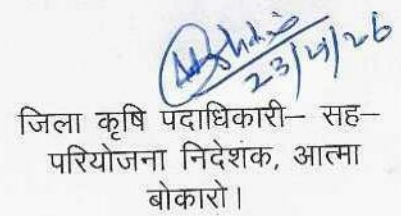 23/4/26
जिला कृषि पदाधिकारी– सह–
परियोजना निदेशक, आत्मा
बोकारो।